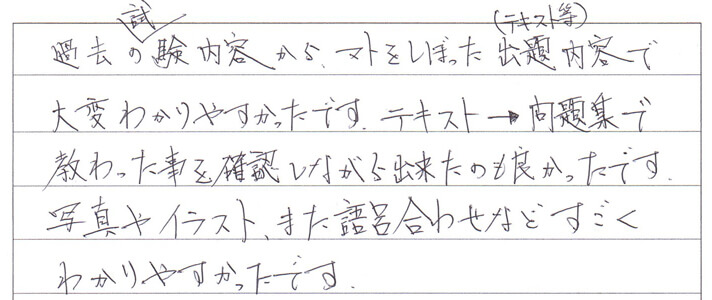 過去の試験内容から、マトをしぼった出題内容(テキスト等)で
大変わかりやすかったです。テキスト→問題集で
教わった事を確認しながら出来たのも良かったです。
写真やイラスト、また語呂合わせなどすごく
わかりやすかったです。